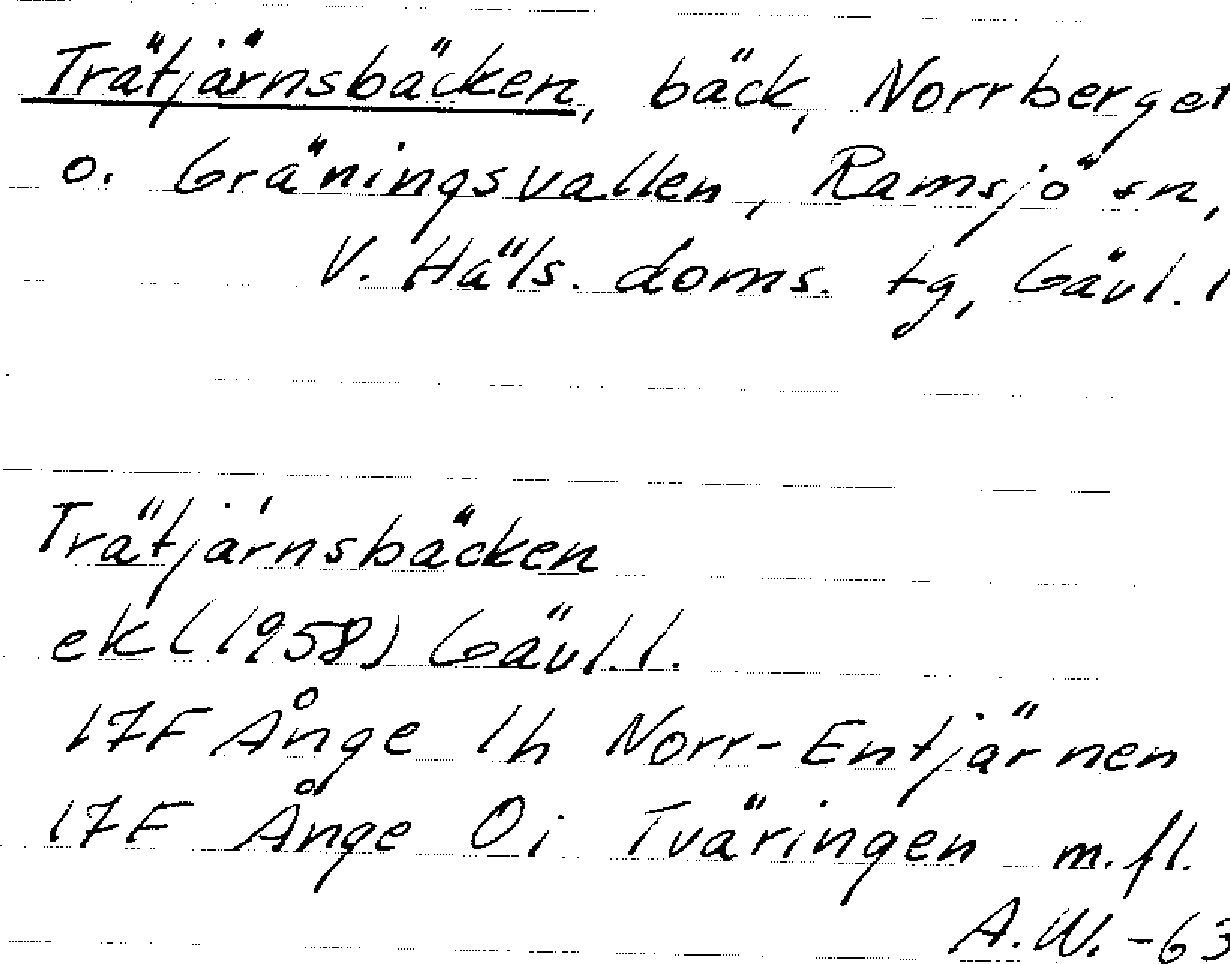 Trätjärnsbäcken, bäck, Norrberget
o. Gräningsvallen, Ramsjö sn,
V. Häls. doms. tg, Gävl. l
Trätjärnsbäcken
ek (1958) Gävl. l.
17F Ånge 1h Norr-Entjärnen
17F Ånge 0i Tväringen m. fl.
A.W. -63